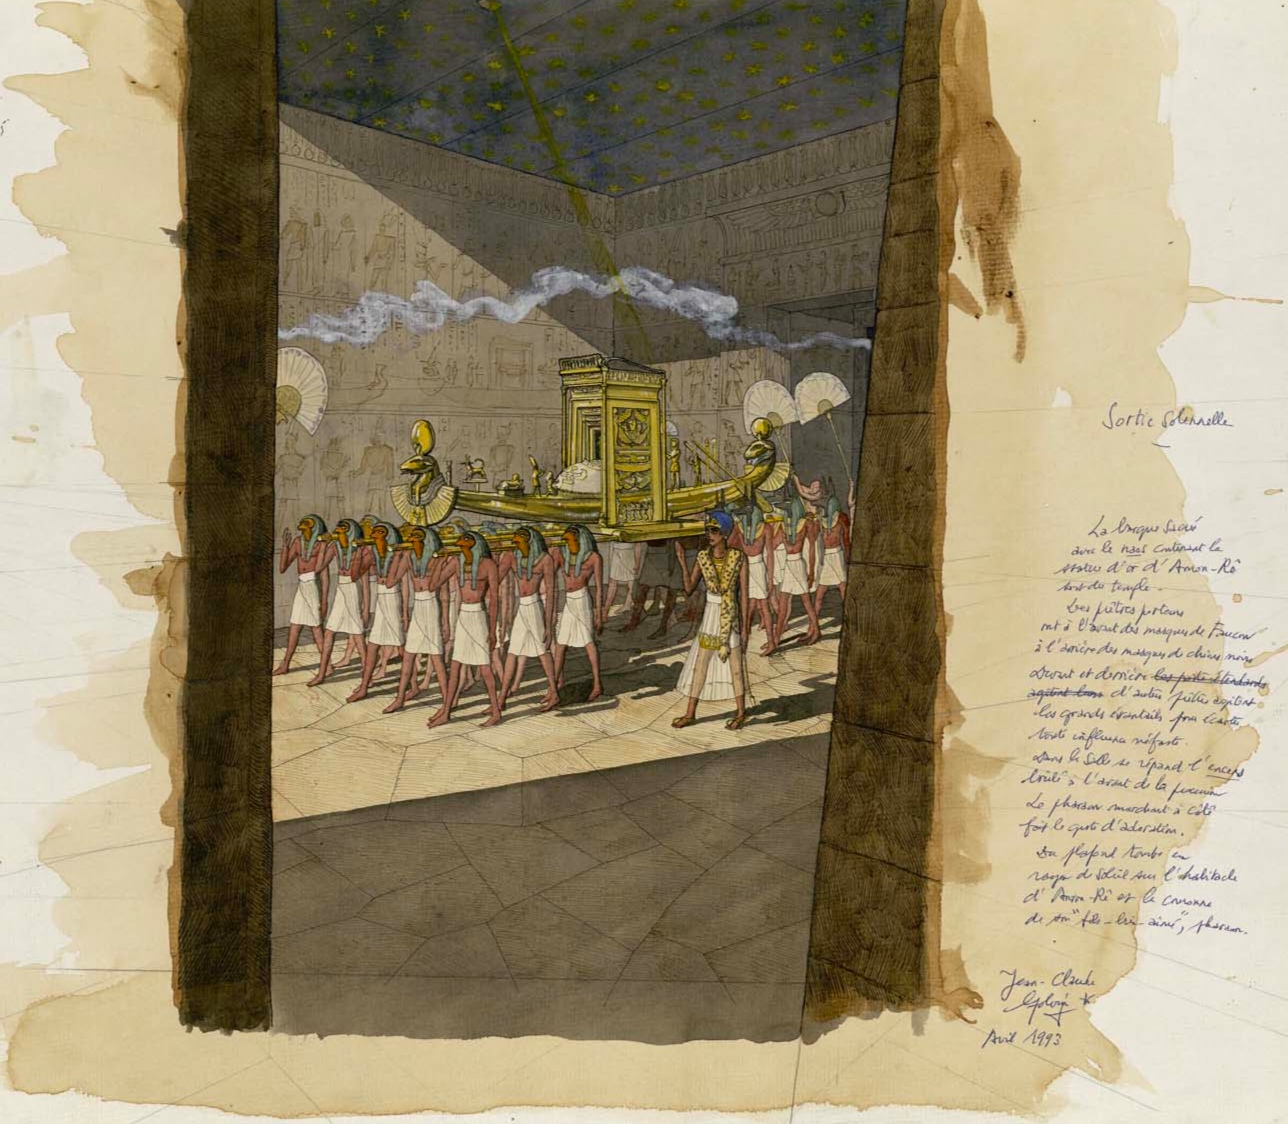 Sortie Solennelle
La barque Sacrée
avec le naos contenant la
statue d'or d'Amon-Rê
sort du temple.
Les prêtres porteurs
ont à l'avant des masques de Faucon
à l'arrière des masques de chiens noirs
Devant et derrière les porte-étendards
agitent leurs d'autres prêtres agitent
les grands éventails pour écarter
toute influence néfaste.
Dans la Salle se répand l'encens
brûlé à l'avant de la procession
Le pharaon marchant à côté
fait le geste d'adoration.
Du plafond tombe un
rayon de Soleil sur l'habitacle
d'Amon-Rê et la couronne
de son "fils-bien-aimé", pharaon.
Jean-Claude
Golvin
Avril 1993